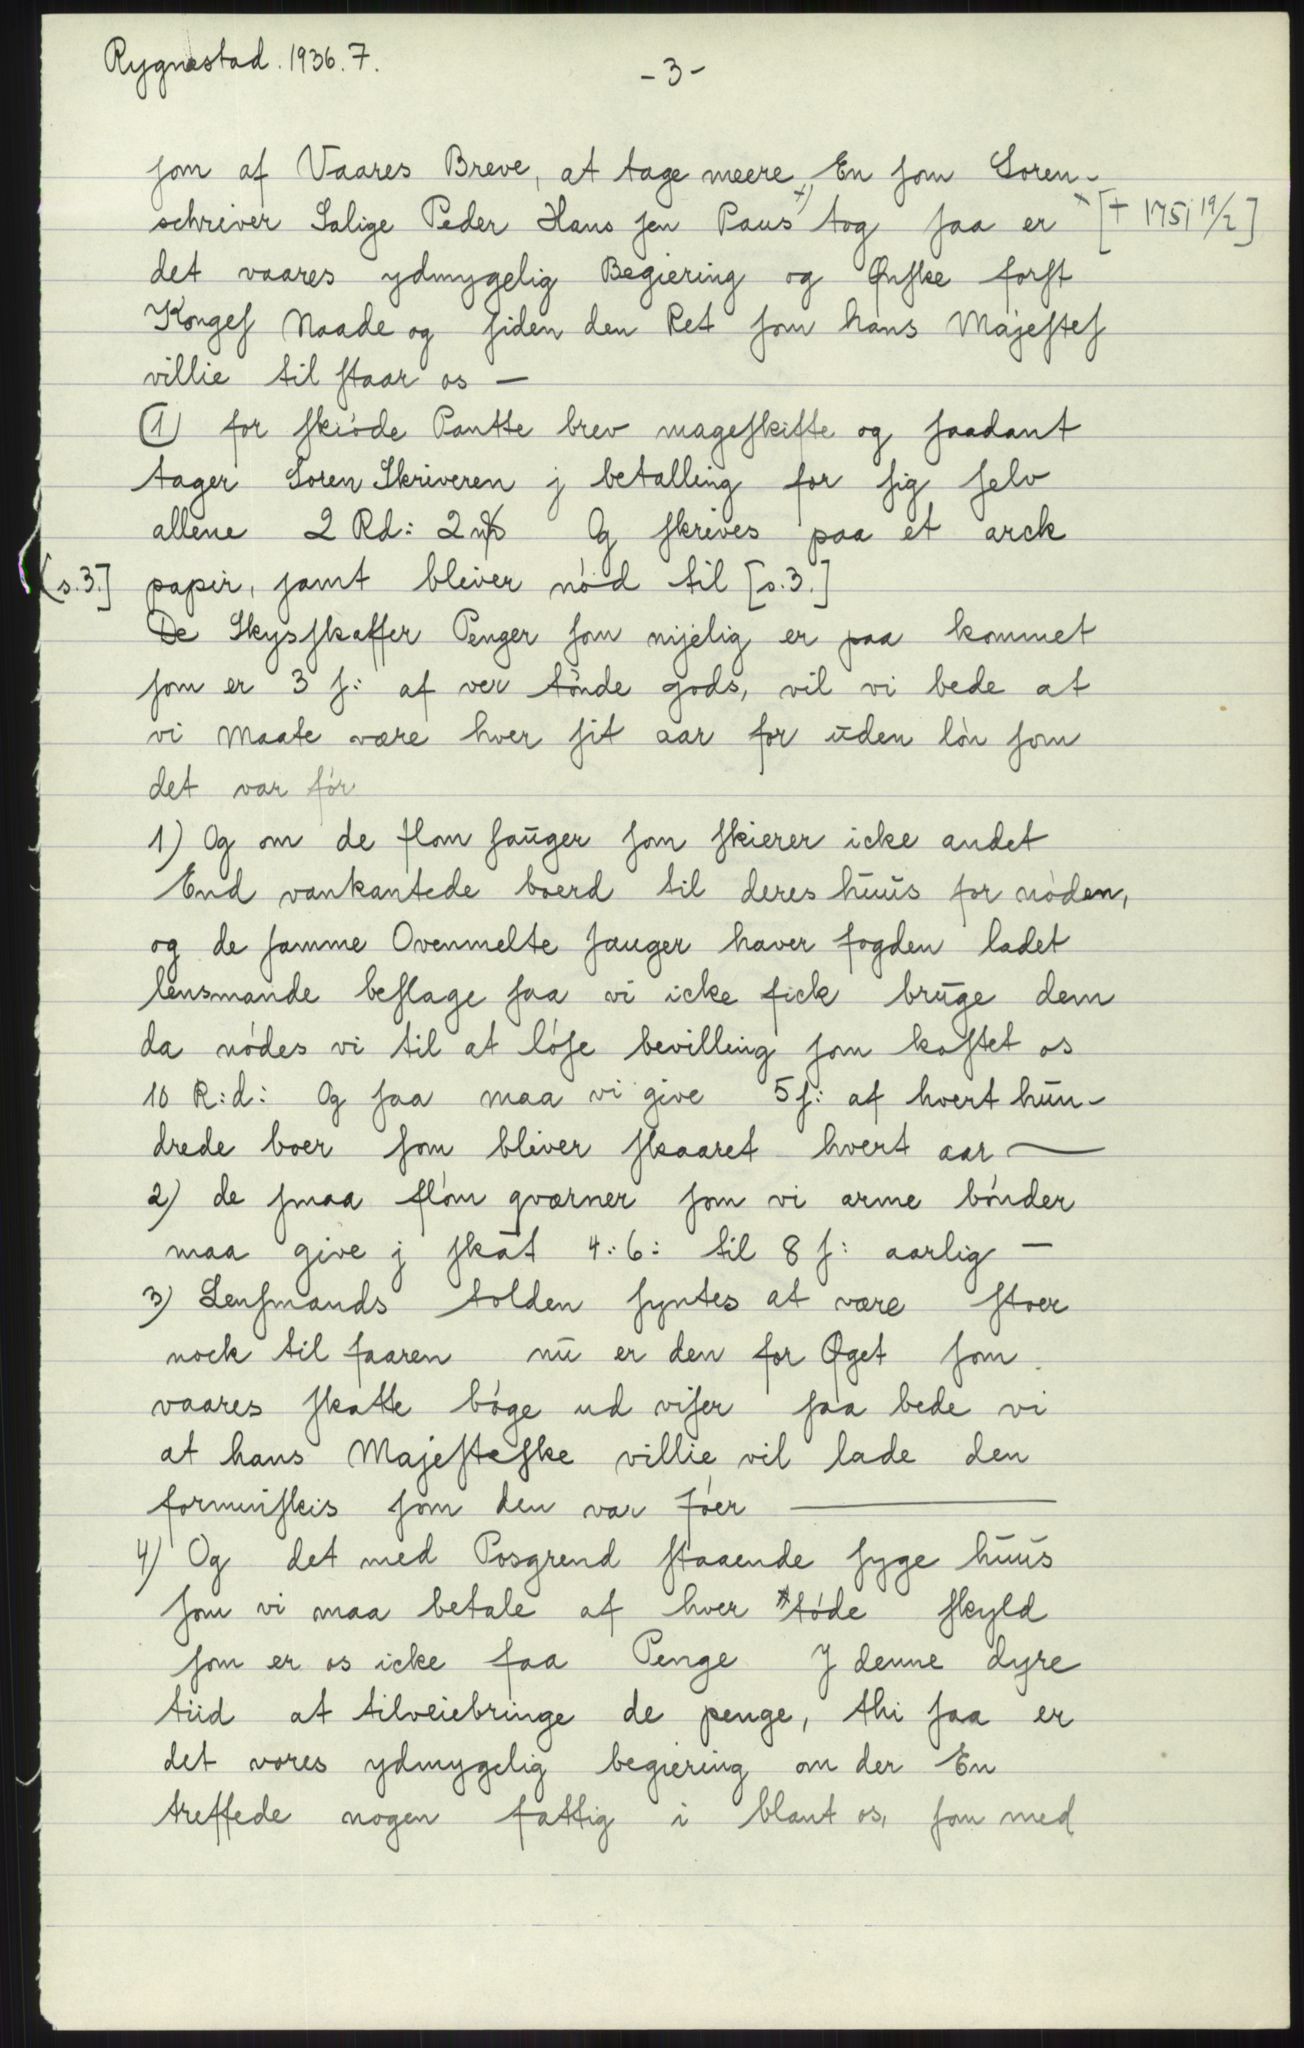 Rygnestad. 1936. 7.
-3-
som af Vaares Breve, at tage meere En som Soren-
schriver Salige Peder Hans sen Paus x) tog saa er x [† 1751 19/2]
det vaares ydmygelig Begiering og Ønske forst
Konges Naade og siden den Ret som hans Majestes
villie til staar os —
(1) for skiøde Pantte brev mageskifte og saadant
tager Soren Skriveren j betalling for sig selv
allene 2 Rd: 2 mk Og skrives paa et arck
(s.3.] papir, samt bliver nód til [s.3.]
De Skysskaffer Penger som nijelig er paa kommet
som er 3 s: af ver tónde gods, vil vi bede at
vi maate være hver sit aar for uden lón som
det var fór
1) Og om de flom sauger som skierer icke andet
End vankantede boerd til deres huus for nóden,
og de samme Ovenmelte sauger haver fogden ladet
lensmande beslage saa vi icke fick bruge dem
da nódes vi til at lóse bevilling som kostet os
10 R:d: Og saa maa vi give 5 s: af hvert hun-
drede boer som bliver skaaret hvert aar —
2) de smaa flóm qværner som vi arme bónder
maa give j skat 4:6: til 8 s: aarlig —
3) Lensmands tolden syntes at være stoer
nock til faaren nu er den for Øget som
vaares skatte bóge ud viser saa bede vi
at hans Majesteske villie vil lade den
forminskis som den var fóer —
4) Og det med Posgrend staaende syge huus
som vi maa betale af hver tóde skyld
som er os icke saa Penge J denne dyre
tiid at tilveiebringe de penge, thi saa er
det vores ydmygelig begiering om der En
treffede nogen fattig i blant os, som med